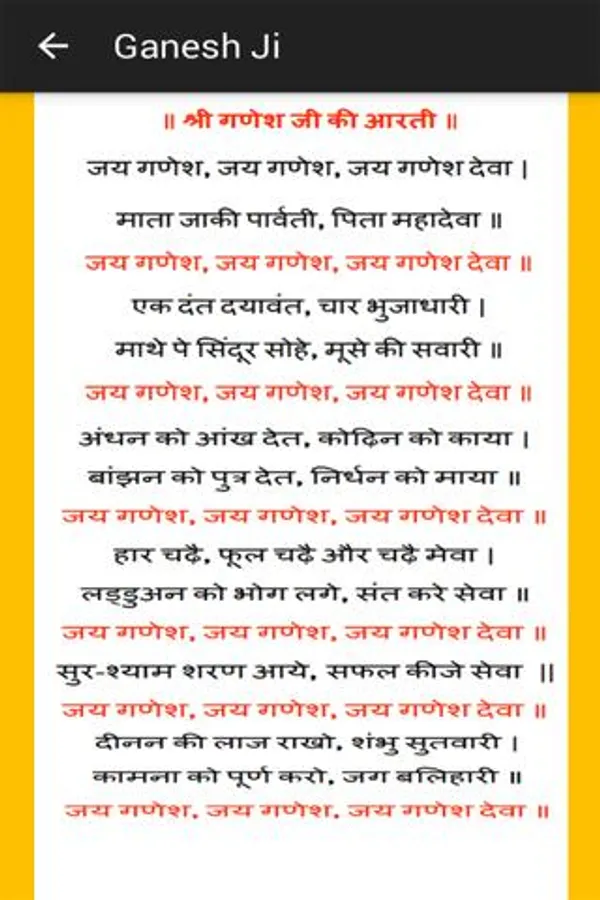 Ganesh Ji
॥ श्री गणेश जी की आरती ॥
जय गणेश, जय गणेश, जय गणेश देवा |
माता जाकी पार्वती, पिता महादेवा ॥
जय गणेश, जय गणेश, जय गणेश देवा ॥
एक दंत दयावंत, चार भुजाधारी |
माथे पे सिंदूर सोहे, मूसे की सवारी ॥
जय गणेश, जय गणेश, जय गणेश देवा ॥
अंधन को आंख देत, कोढ़िन को काया |
बांझन को पुत्र देत, निर्धन को माया ॥
जय गणेश, जय गणेश, जय गणेश देवा ॥
हार चढ़ै, फूल चढ़ै और चढ़ै मेवा |
लड्डुअन को भोग लगे, संत करे सेवा ॥
जय गणेश, जय गणेश, जय गणेश देवा ॥
सुर-श्याम शरण आये, सफल कीजे सेवा ||
जय गणेश, जय गणेश, जय गणेश देवा ॥
दीनन की लाज राखो, शंभु सुतवारी |
कामना को पूर्ण करो, जग बलिहारी ॥
जय गणेश, जय गणेश, जय गणेश देवा ॥